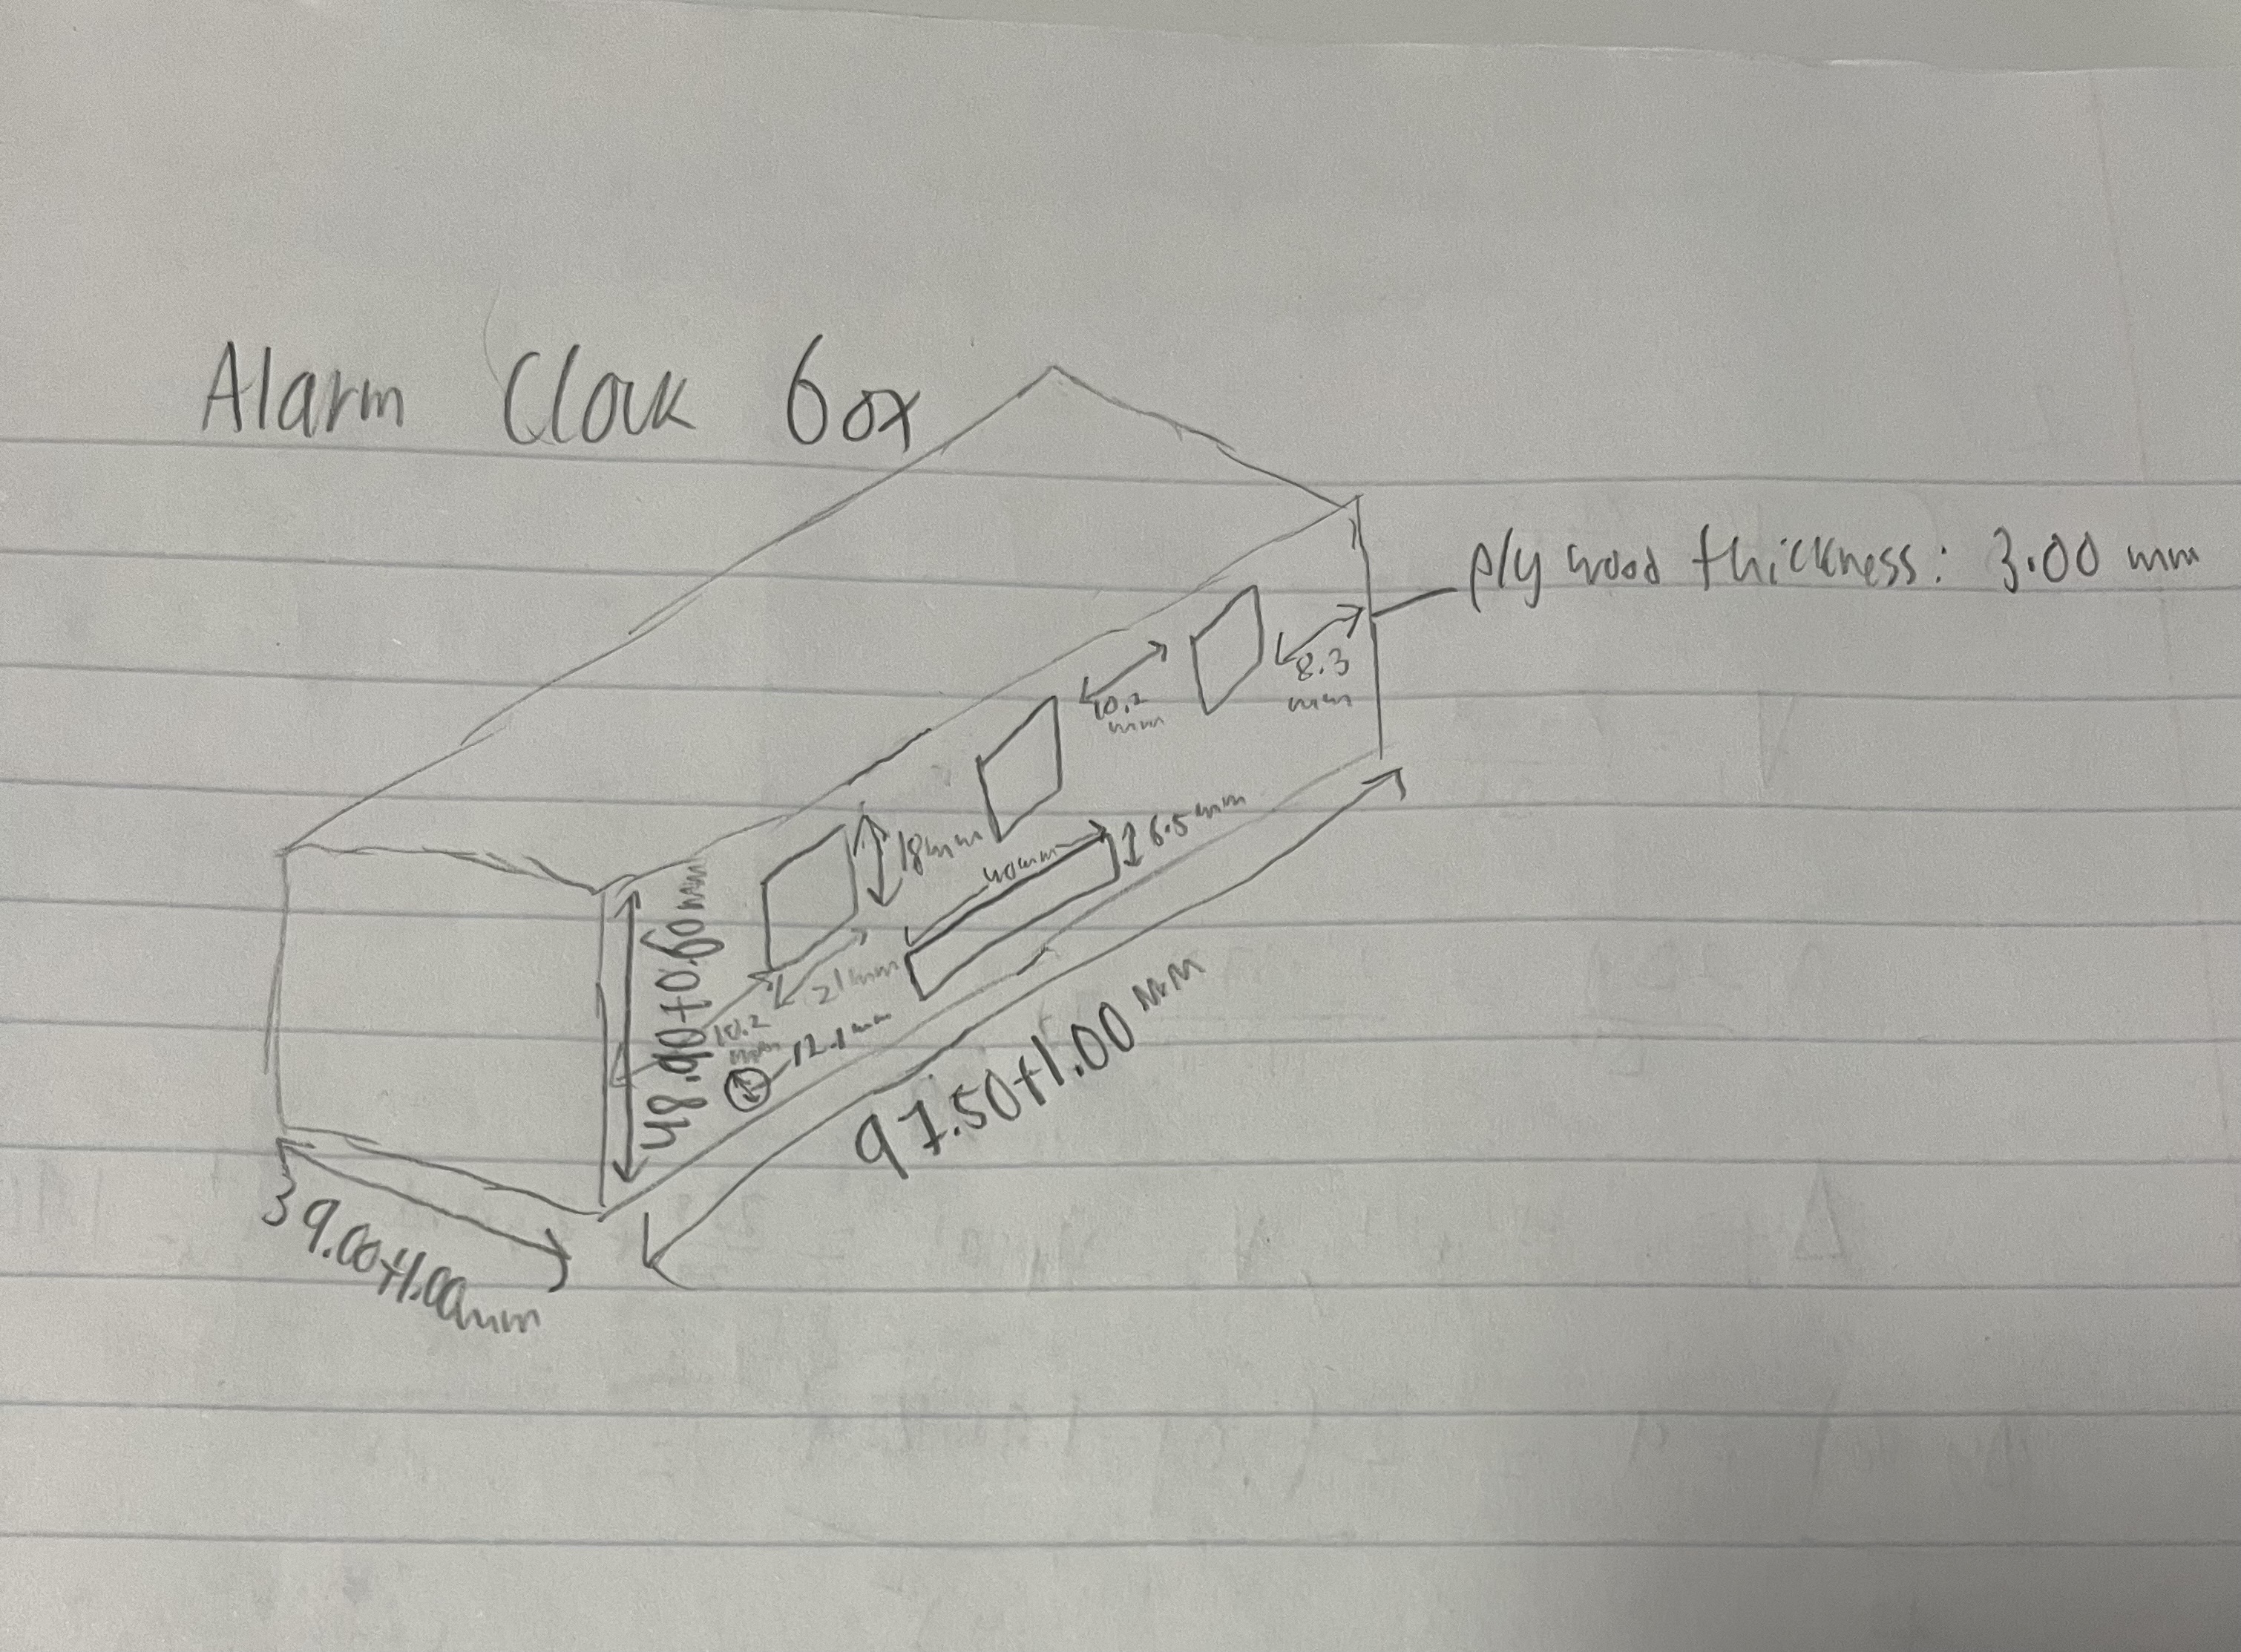 Alarm Clock box
plywood thickness: 3.00 mm
8.3
mm
10.2
mm
18mm
40mm
6.5mm
21mm
10.2
mm
12.1mm
48.90+0.60mm
97.50+1.00mm
39.00+1.00mm